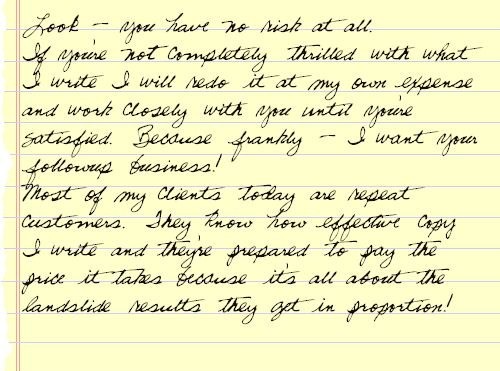 Look – you have no risk at all.
If you're not completely thrilled with what
I write I will redo it at my own expense
and work closely with you until you're
satisfied. Because frankly – I want your
followup business!
Most of my clients today are repeat
customers. They know how effective copy
I write and they're prepared to pay the
price it takes because it's all about the
landslide results they get in proportion!